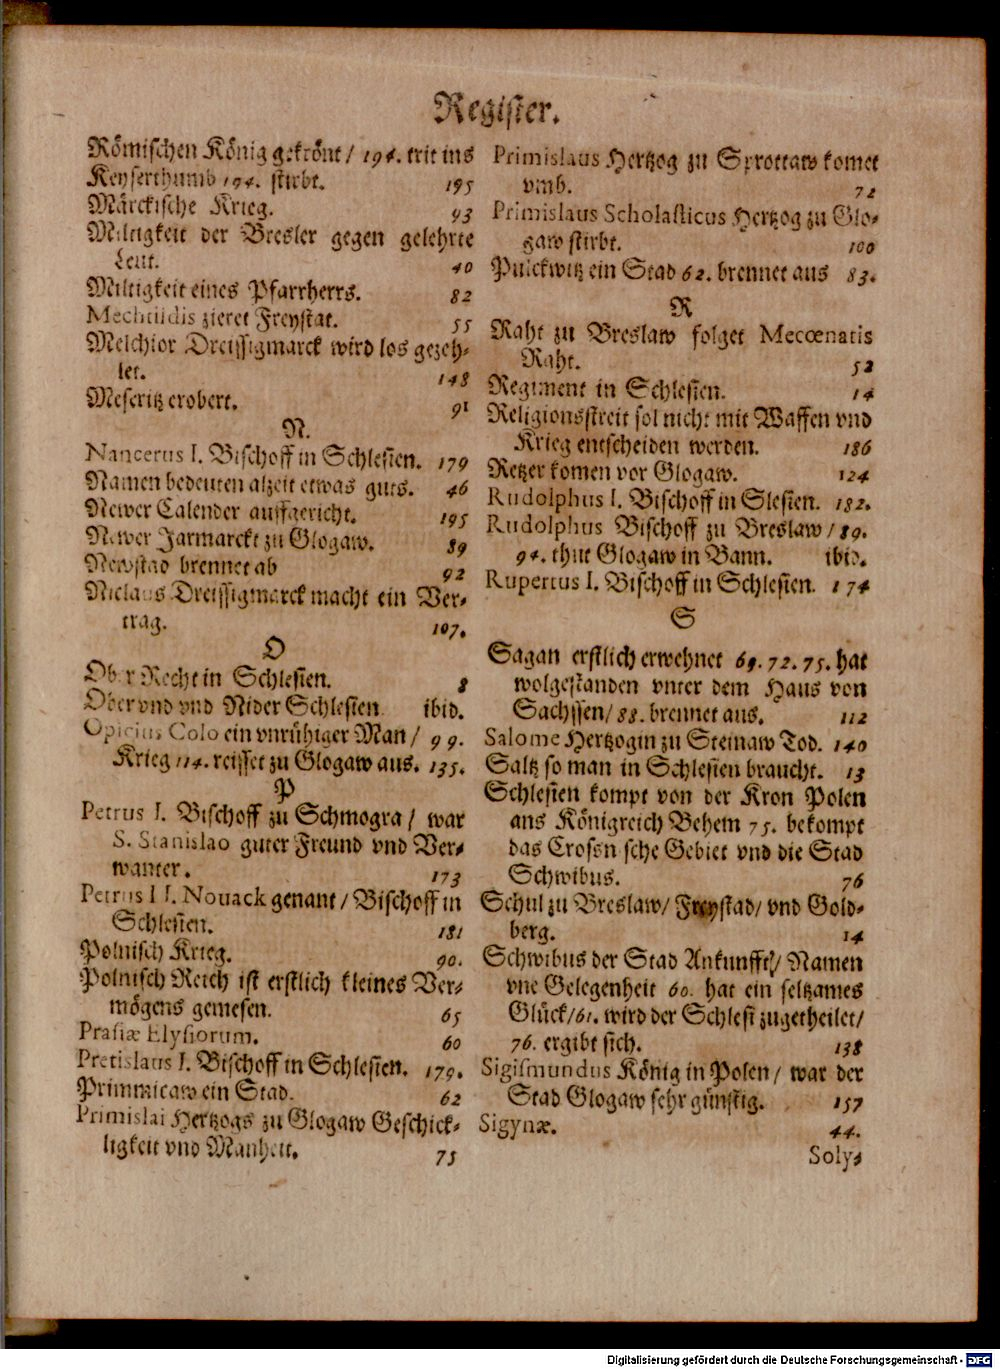 Register.
Römischen König gekrönt / 194. trit ins
Keyserthumb 194. stirbt. 195
Märckische Krieg. 93
Miltigkeit der Bresler gegen gelehrte
Leut. 40
Miltigkeit eines Pfarrherrs. 82
Mechtildis zieret Freystat. 55
Melchior Dreissigmarck wird los gezeh-
let. 148
Meseritz erobert. 91
N.
Nancerus I. Bischoff in Schlesien. 179
Namen bedeuten alzeit etwas guts. 46
Newer Calender auffgericht. 195
Newer Jarmarckt zu Glogaw. 89
Newstad brennet ab 92
Niclaus Dreissigmarck macht ein Ver-
trag. 107.
O
Ober Recht in Schlesien. 8
Ober vnd vnd Nider Schlesien ibid.
Opicius Colo ein vnrühiger Man / 99.
Krieg 114. reisset zu Glogaw aus. 135.
P
Petrus I. Bischoff zu Schmogra / war
S. Stanislao guter Freund vnd Ver-
wanter. 173
Petrus II. Nouack genant / Bischoff in
Schlesien. 181
Polnisch Krieg. 90.
Polnisch Reich ist erstlich kleines Ver-
mögens gewesen. 65
Prasiæ Elysiorum. 60
Pretislaus I. Bischoff in Schlesien. 179.
Primmicaw ein Stad. 62
Primislai Hertzogs zu Glogaw Geschick-
ligkeit vnd Manheit. 75
Primislaus Hertzog zu Sprottaw komet
vmb. 72
Primislaus Scholasticus Hertzog zu Glo-
gaw stirbt. 100
Pulckwitz ein Stad 62. brennet aus 83.
R
Raht zu Breslaw folget Mecœnatis
Raht. 52
Regiment in Schlesien. 14
Religionsstreit sol nicht mit Waffen vnd
Krieg entscheiden werden. 186
Retzer komen vor Glogaw. 124
Rudolphus I. Bischoff in Slesien. 182.
Rudolphus Bischoff zu Breslaw / 89.
94. thut Glogaw in Bann. ibid.
Rupertus I. Bischoff in Schlesien. 174
S
Sagan erstlich erwehnet 69. 72. 75. hat
wolgestanden vnter dem Haus von
Sachssen / 88. brennet aus. 112
Salome Hertzogin zu Steinaw Tod. 140
Saltz so man in Schlesien braucht. 13
Schlesien kompt von der Kron Polen
ans Königreich Behem 75. bekompt
das Crossnische Gebiet vnd die Stad
Schwibus. 76
Schul zu Breslaw / Freystad / vnd Gold-
berg. 14
Schwibus der Stad Ankunfft / Namen
vne Gelegenheit 60. hat ein seltzames
Glück / 61. wird der Schlesi zugetheilet /
76. ergibt sich. 138
Sigismundus König in Polen / war der
Stad Glogaw sehr günstig. 157
Sigynæ. 44.
Soly-
Digitalisierung gefördert durch die Deutsche Forschungsgemeinschaft - DFG